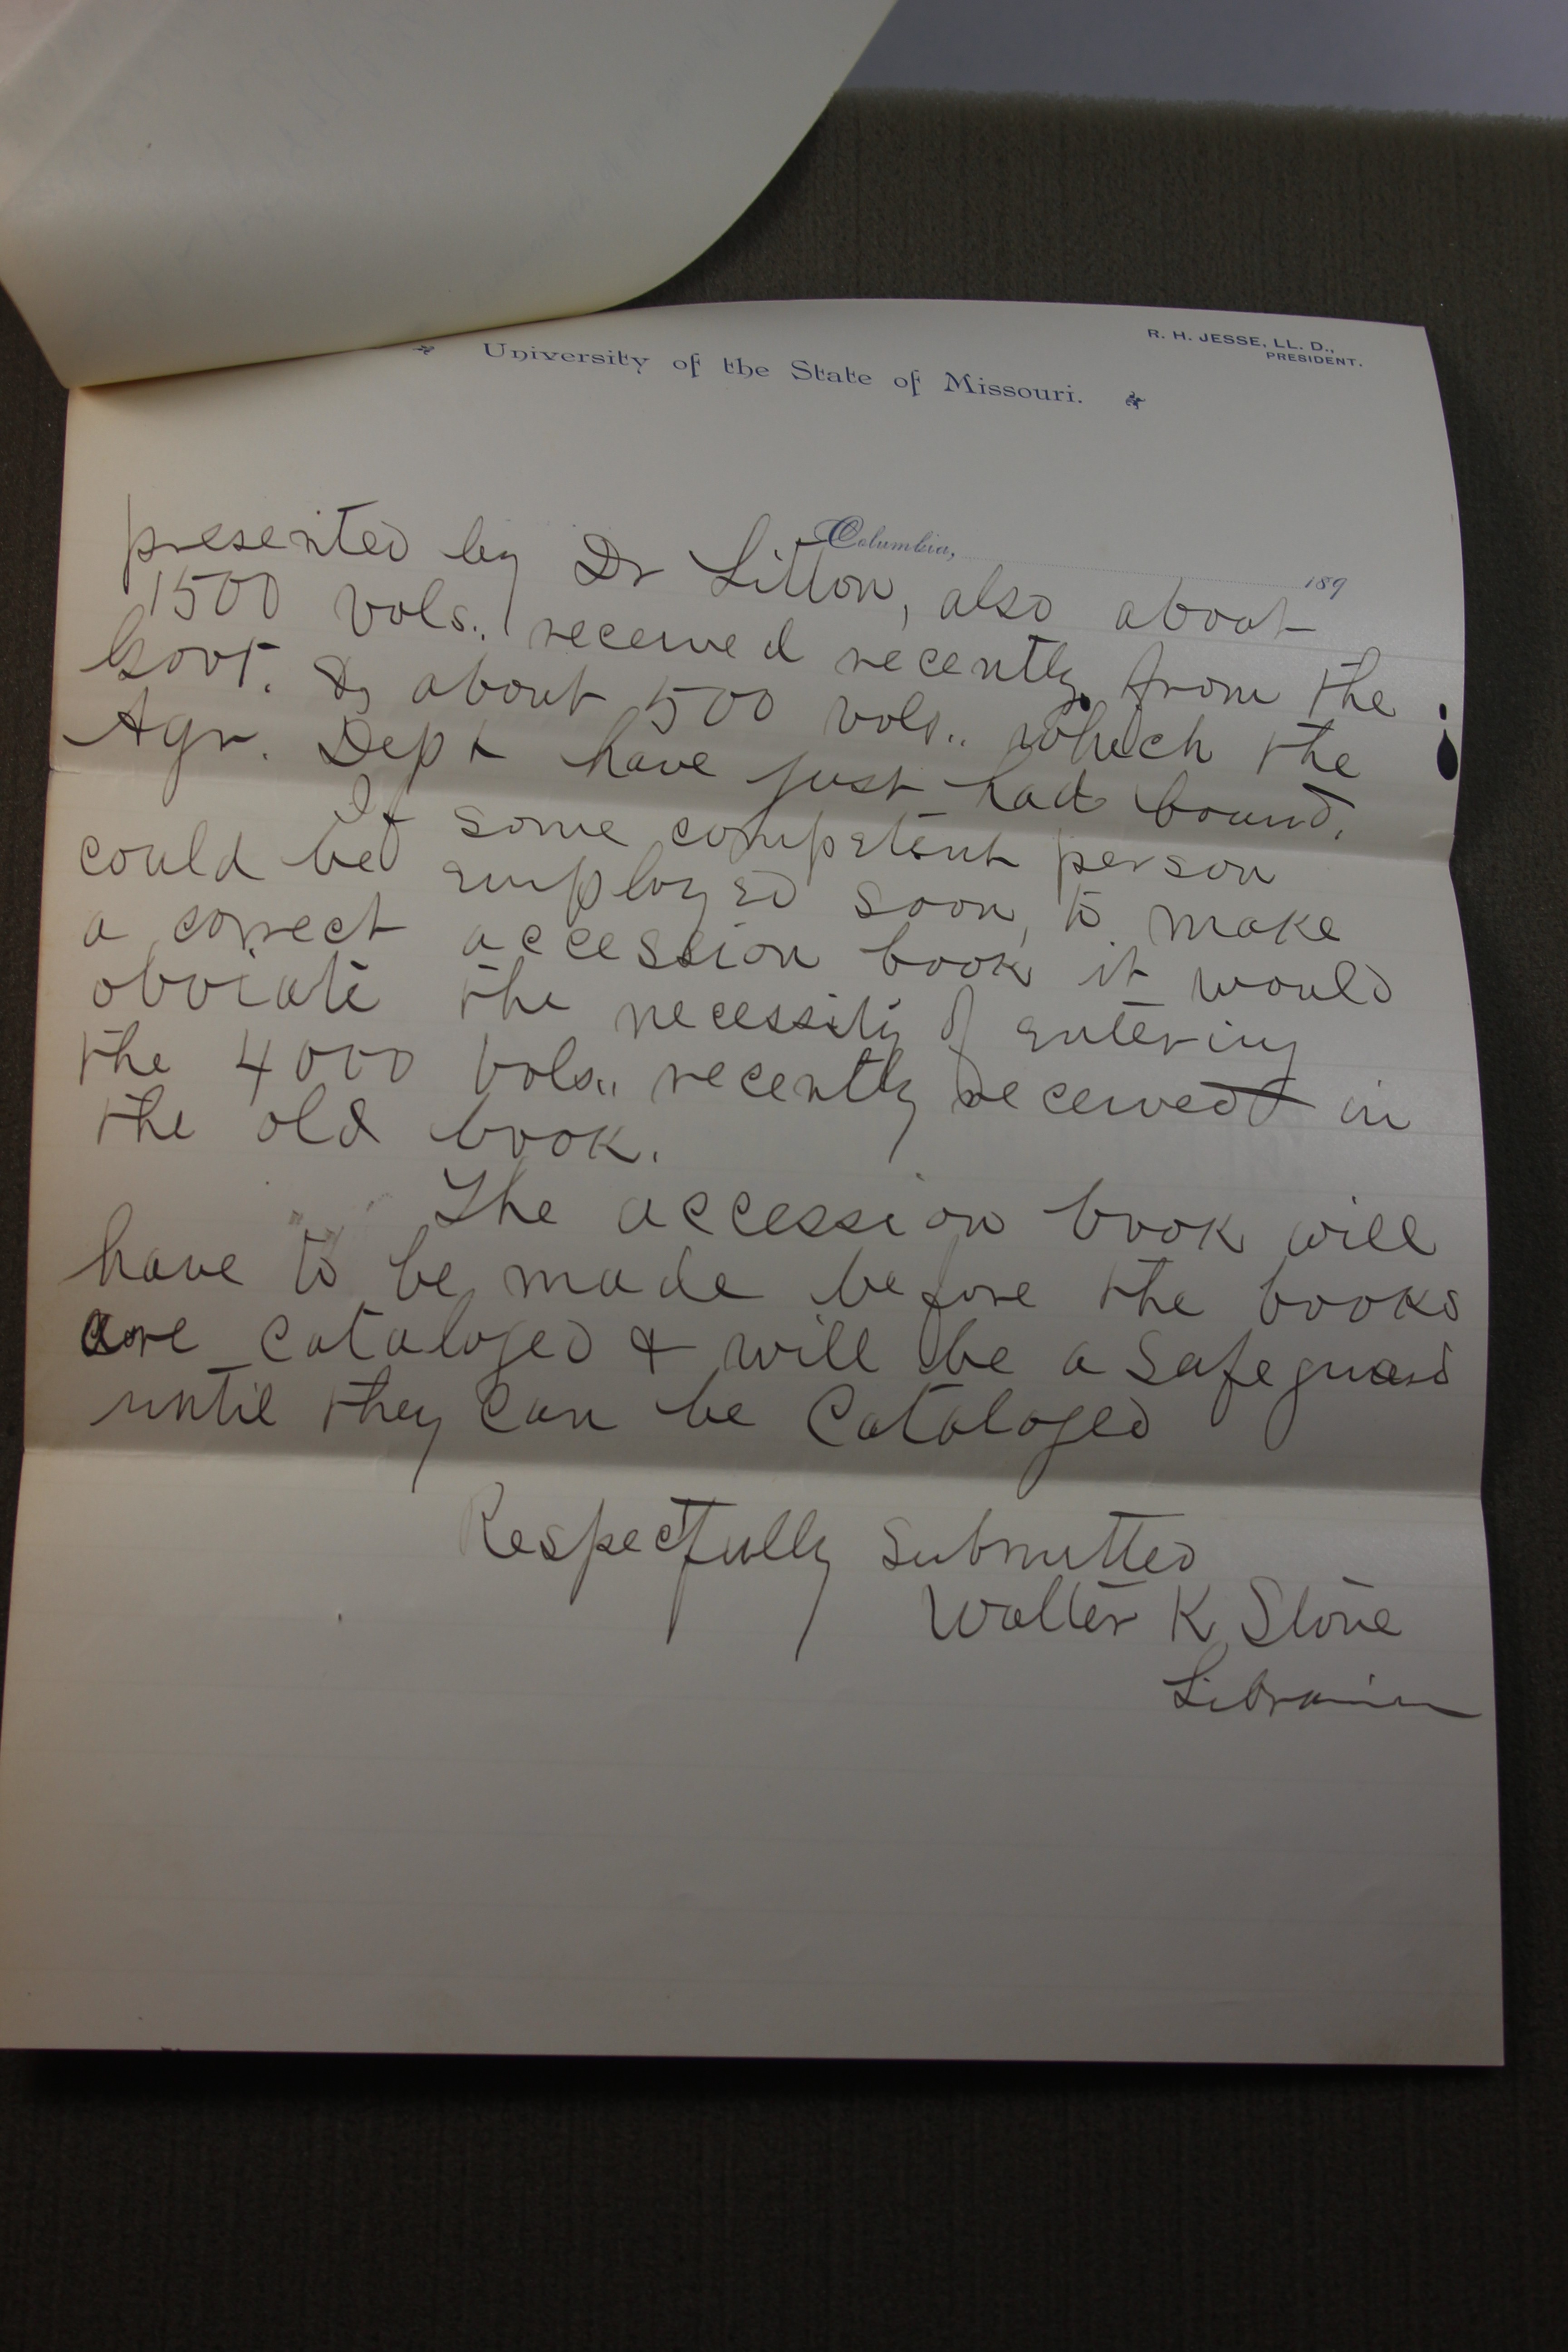 R. H. JESSE, LL. D.,
PRESIDENT.
University of the State of Missouri.
Columbia, 189
presented by Dr Litton, also about
1500 vols., received recently from the
Govt. & about 500 vols., which the
Agr. Dept have just had bound.
If some competent person
could be employed soon, to make
a correct accession book it would
obviate the necessity of entering
the 4000 vols., recently received in
the old book.
The accession book will
have to be made before the books
are cataloged & will be a safeguard
until they can be Cataloged
Respectfully submitted
Walter K Stone
Librarian